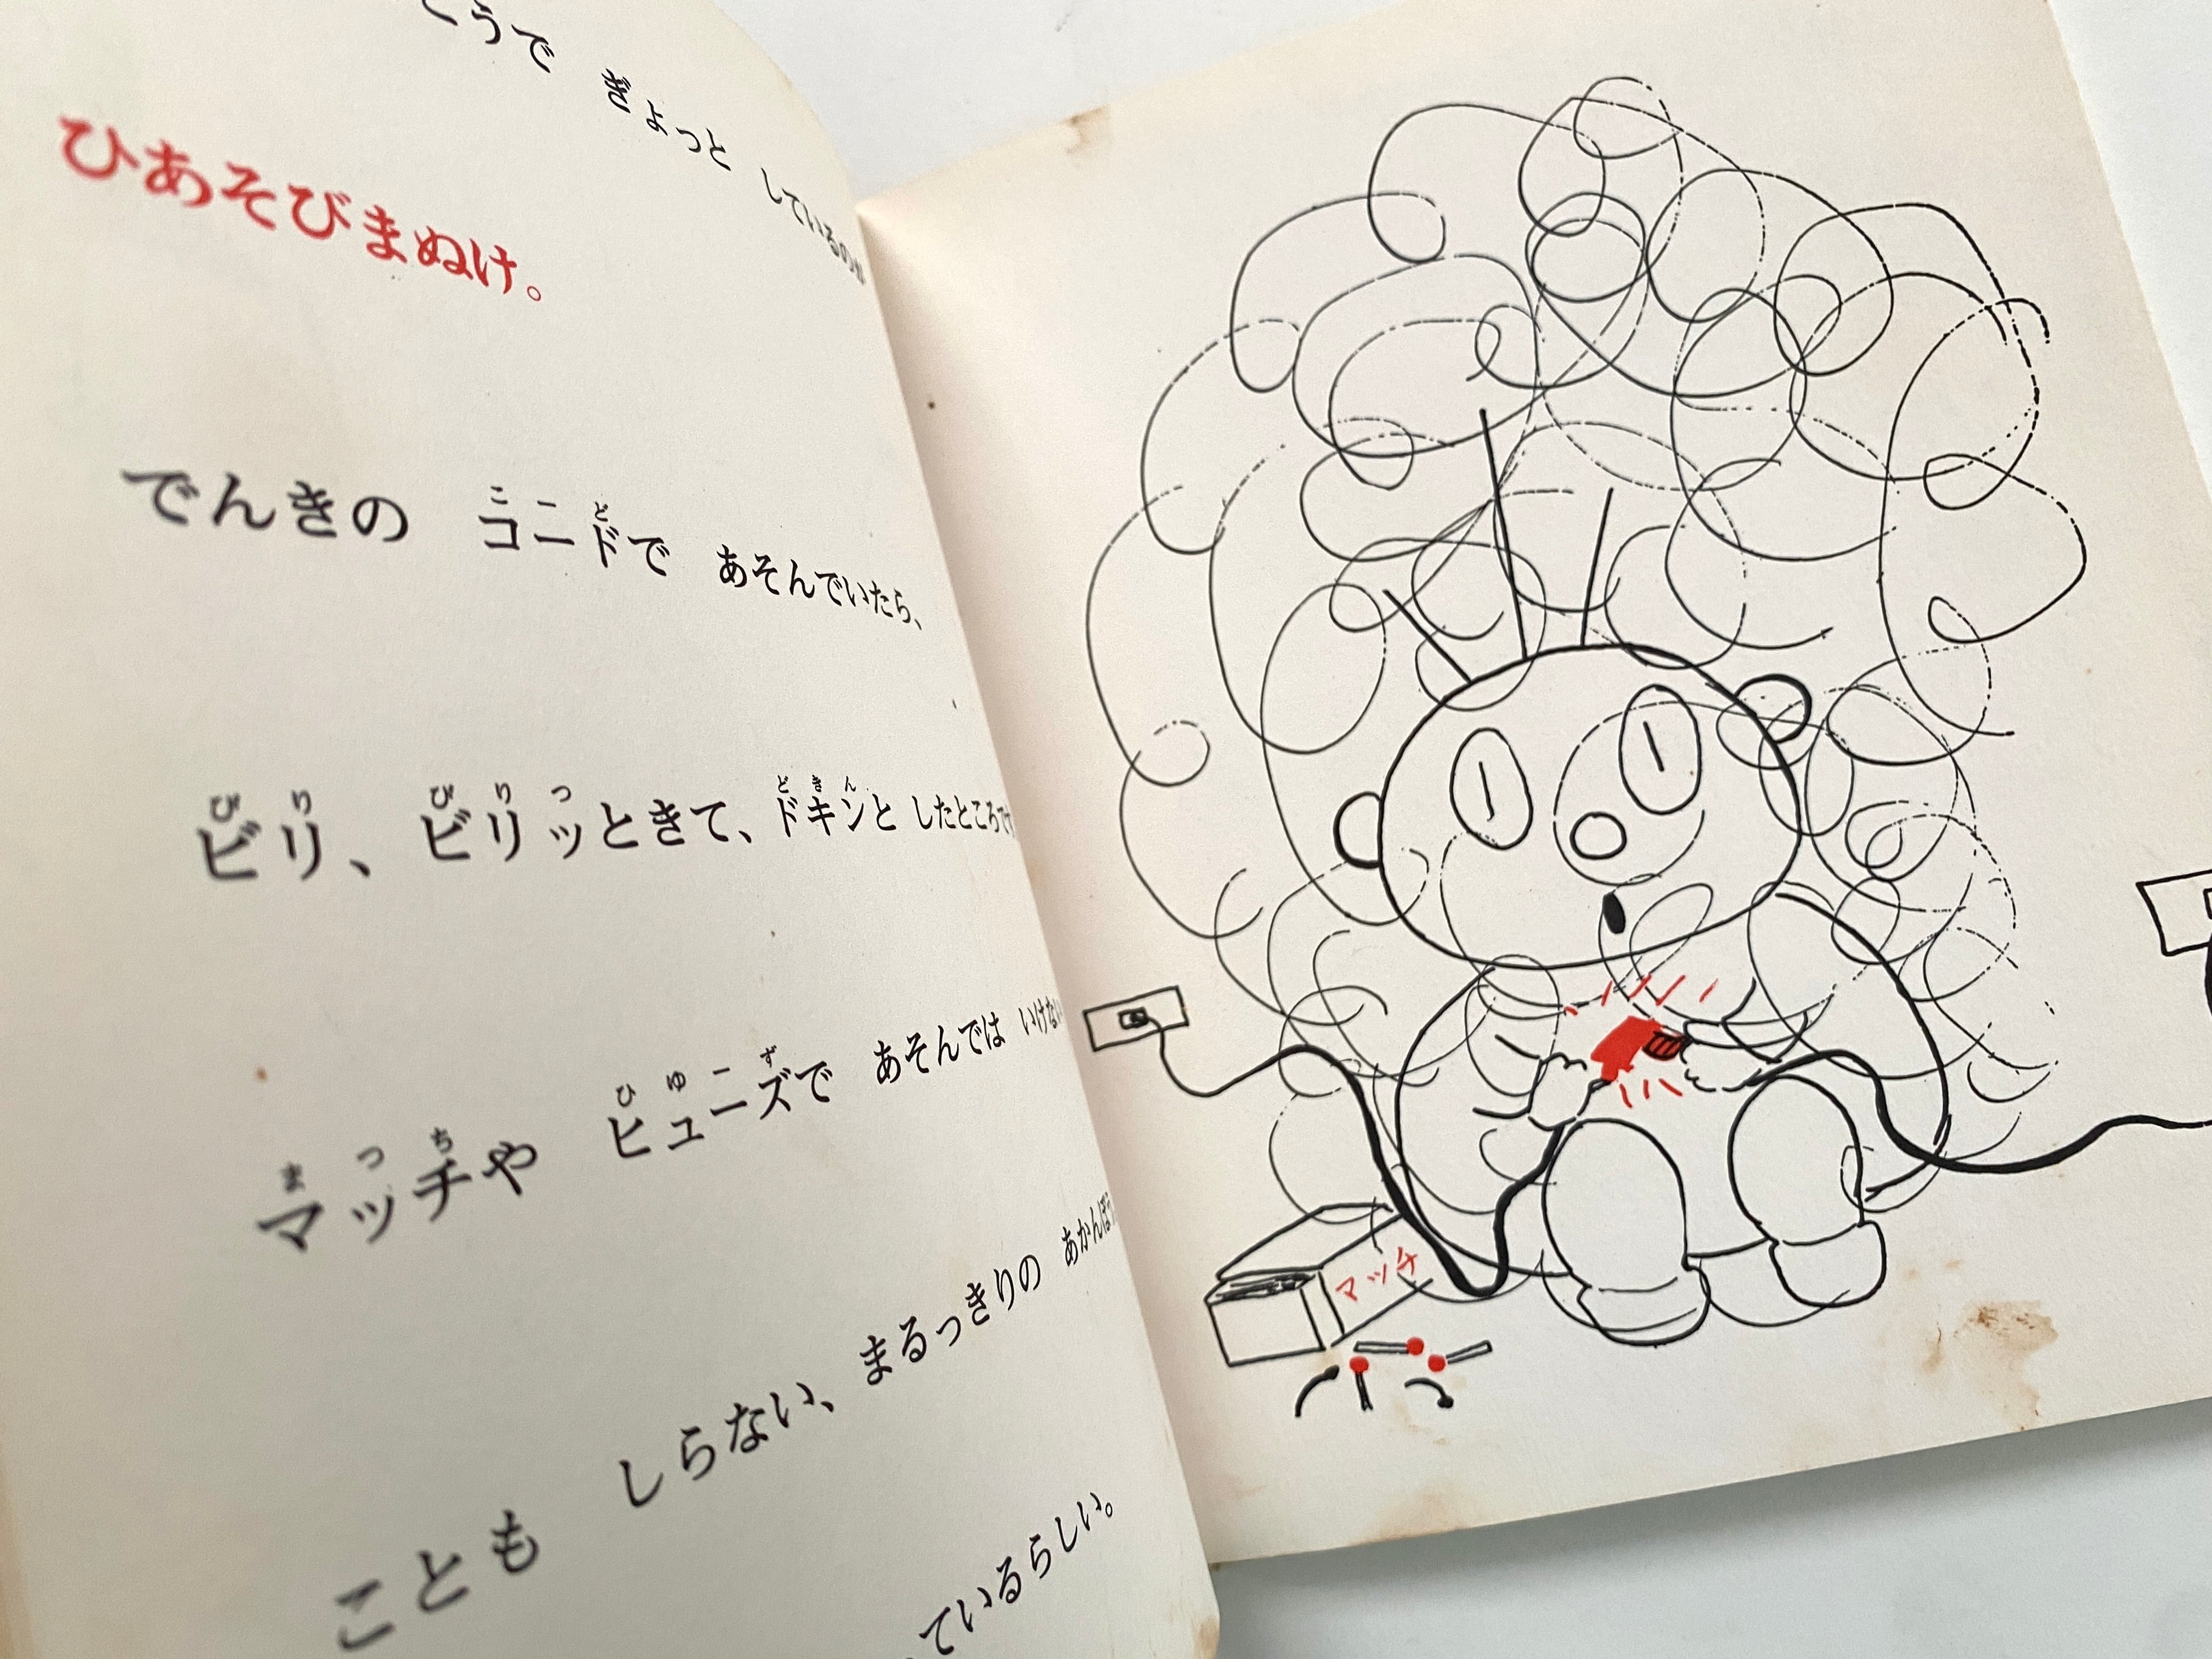 うで ぎょっと しているのが
ひあそびまぬけ。
でんきの コードで あそんでいたら、
ビリ、ビリッときて、ドキンと したところで
マッチや ヒューズで あそんでは いけない
ことも しらない、まるっきりの あかんぼう
ているらしい。
マッチ